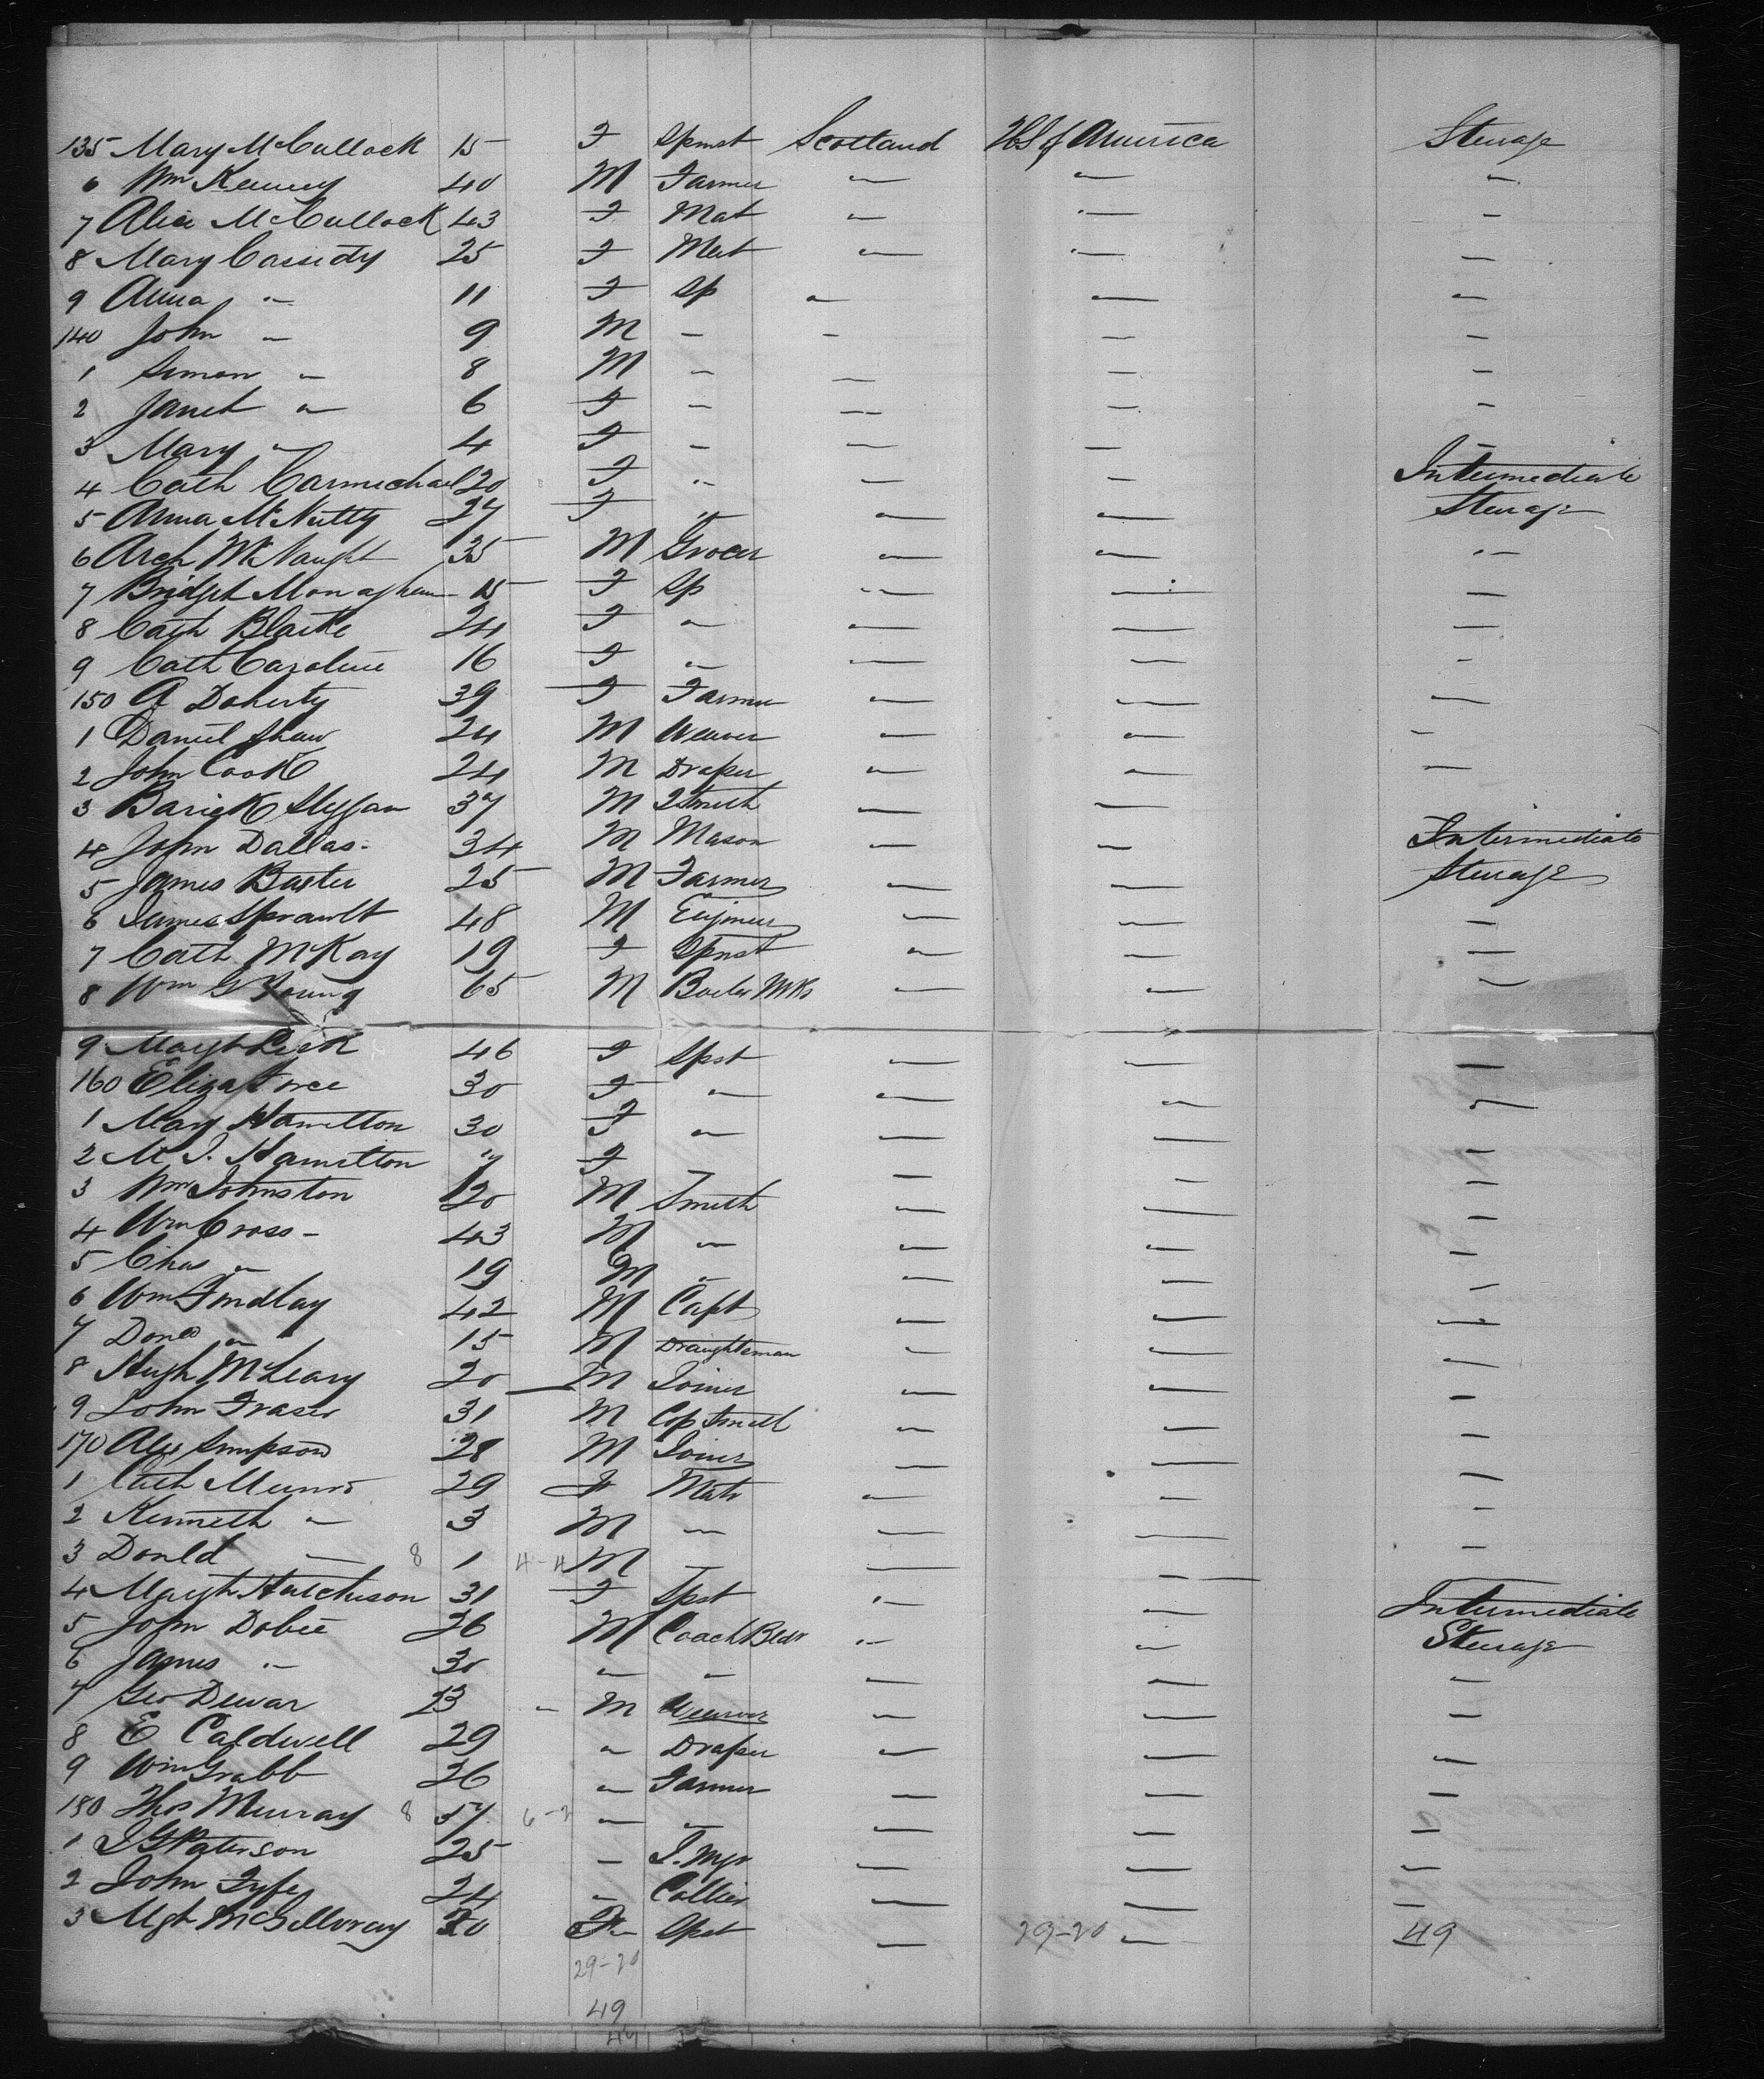 135 Mary McCullock 15 F Spinst Scotland US of America Steerage
6 Wm Kenney 40 M Farmer — — —
7 Alice McCullock 43 F Mat — — —
8 Mary Cassidy 25 F Mat — — —
9 Anna " 11 F Sp — — —
140 John " 9 M — — — —
1 Simon " 8 M — — — —
2 Janet " 6 F — — — —
3 Mary " 4 F — — —
4 Cath Carmichael 20 F " — — Intermediate
5 Anna McNulty 27 F " — — Steerage
6 Arch McNaught 35 M Grocer — — —
7 Bridget Monaghan 15 F Sp — — —
8 Cath 24 F " — — —
9 Cath Caroline 16 F " — — —
150 A Doherty 39 F Farmer — — —
1 Daniel Shaw 24 M Weaver — — —
2 John Cook 24 M Draper — — —
3 37 M — —
4 John Dallas 34 M Mason — — Intermediate
5 James Baxter 25 M Farmer — — Steerage
6 James 48 M Engineer — — —
7 Cath McKay 19 F Spnst — — —
8 Wm G Young 65 M Boiler Mkr — — —
9 Margt 46 F Spst — — —
160 Eliza 30 F " — — —
1 Mary Hamilton 30 F " — — —
2 M J. Hamilton " F — — — —
3 Wm Johnston 20 M Smith — — —
4 Wm Cross 43 M " — — —
5 Chas " 19 M " — — —
6 Wm Findlay 42 M Capt — — —
7 Dond " 15 M Draughtsman — — —
8 Hugh McLeary 20 M Joiner — — —
9 John Fraser 31 M Cop Smith — — —
170 Alex Simpson 28 M Joiner — — —
1 Cath Munro 29 F Matr — — —
2 Kenneth " 3 M — — — —
3 Donld — 8 1 4-4 M — — —
4 Margt Hutcheson 31 F Spst — — Intermediate
5 John Dobie 26 M Coach Bldr — — Steerage
6 James " 30 " " — — —
7 Geo Dewar 23 M Weaver — — —
8 E Caldwell 29 " Draper — — —
9 Wm Grabb 26 " Farmer — — —
180 Thos Murray 8 37 6-2 — — — — —
1 J G Paterson 25 — — — —
2 John Fyfe 24 " Collier — — —
3 Mgt McGillvray 30 F Spst — 29-20 — 49
29-20
49
49